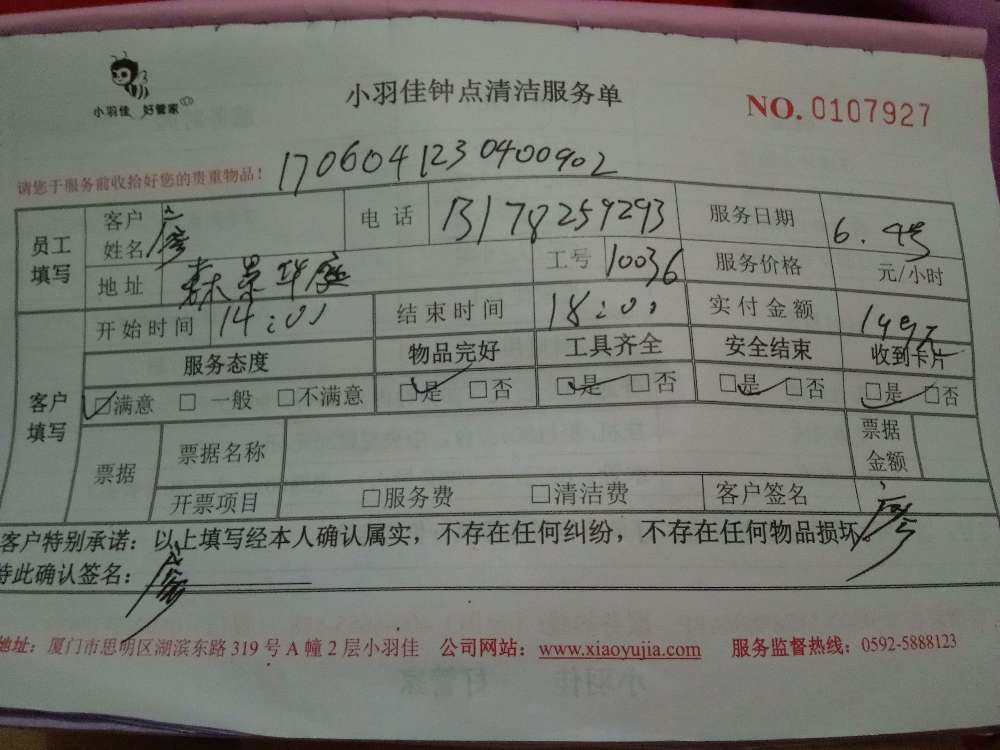 小羽佳 好管家
小羽佳钟点清洁服务单
NO. 0107927
请您于服务前收拾好您的贵重物品！
1706041230400902
员工填写 客户姓名 廖 电话 13178259293 服务日期 6.4号
地址 森景华庭 工号 10036 服务价格 元/小时
客户填写 开始时间 14:00 结束时间 18:00 实付金额 149元
服务态度 物品完好 工具齐全 安全结束 收到卡片
□满意 □一般 □不满意 □是 □否 □是 □否 □是 □否 □是 □否
票据 票据名称 票据金额
开票项目 □服务费 □清洁费 客户签名 廖
客户特别承诺：以上填写经本人确认属实，不存在任何纠纷，不存在任何物品损坏
特此确认签名：廖
地址：厦门市思明区湖滨东路319号A幢2层小羽佳 公司网站：www.xiaoyujia.com 服务监督热线：0592-5888123